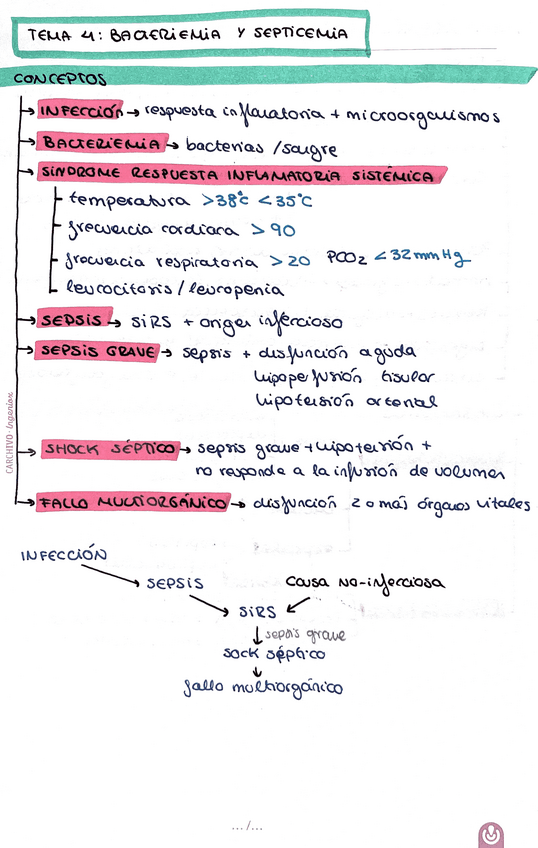 TEMA 4: BACTERIEMIA Y SEPTICEMIA
CONCEPTOS
→ INFECCIÓN → respuesta inflamatoria + microorganismos
→ BACTERIEMIA → bacterias /sangre
→ SÍNDROME RESPUESTA INFLAMATORIA SISTÉMICA
temperatura >38°C <35°C
frecuencia cardiaca >90
frecuencia respiratoria >20 PCO2 <32mmHg
leucocitosis/leucopenia
→ SEPSIS → SiRS + origen infeccioso
→ SEPSIS GRAVE → sepsis + disfunción aguda
hipoperfusión tisular
hipotensión arterial
→ SHOCK SÉPTICO → sepsis grave + hipotensión +
no responde a la infusión de volumen
→ FALLO MULTIORGÁNICO → disfunción 2 o más órganos vitales
CARCHIVO-Inperion
INFECCIÓN
SEPSIS causa no-infecciosa
SiRS
↓ sepsis grave
sock séptico
↓
fallo multiorgánico
.../...